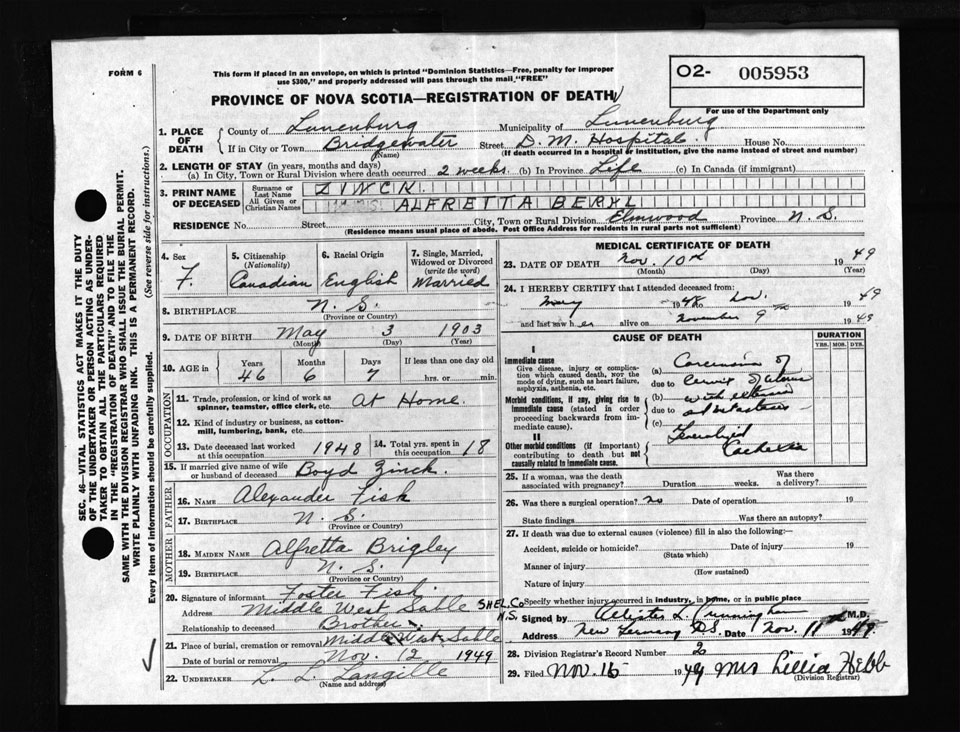 FORM 6
This form if placed in an envelope, on which is printed "Dominion Statistics—Free, penalty for improper
use $300," and properly addressed will pass through the mail "FREE"
O2- 005953
For use of the Department only
PROVINCE OF NOVA SCOTIA—REGISTRATION OF DEATH
1. PLACE OF DEATH
County of Lunenburg Municipality of Lunenburg
If in City or Town Bridgewater Street D. M. Hospital House No.
(Name) (If death occurred in a hospital or institution, give the name instead of street and number)
2. LENGTH OF STAY (in years, months and days)
(a) In City, Town or Rural Division where death occurred 2 weeks. (b) In Province Life (c) In Canada (if immigrant)
3. PRINT NAME OF DECEASED
Surname or Last Name ZINCK
All Given or Christian Names ALFRETTA BERYL
RESIDENCE No. Street City, Town or Rural Division Elmwood Province N. S.
(Residence means usual place of abode. Post Office Address for residents in rural parts not sufficient)
4. Sex F.
5. Citizenship (Nationality) Canadian
6. Racial Origin English
7. Single, Married, Widowed or Divorced (write the word) Married
8. BIRTHPLACE N. S.
(Province or Country)
9. DATE OF BIRTH May 3 1903
(Month) (Day) (Year)
10. AGE in Years 46 Months 6 Days 7 If less than one day old hrs. or min.
OCCUPATION
11. Trade, profession, or kind of work as spinner, teamster, office clerk, etc. At Home.
12. Kind of industry or business, as cotton-mill, lumbering, bank, etc.
13. Date deceased last worked at this occupation 1948 14. Total yrs. spent in this occupation 18
15. If married give name of wife or husband of deceased Boyd Zinck.
FATHER
16. NAME Alexander Fisk
17. BIRTHPLACE N. S.
(Province or Country)
MOTHER
18. MAIDEN NAME Alfretta Brigley
19. BIRTHPLACE N. S.
(Province or Country)
20. Signature of informant Foster Fisk
Address Middle West Sable SHEL. Co N.S.
Relationship to deceased Brother
21. Place of burial, cremation or removal Middle West Sable
Date of burial or removal Nov. 12 1949
22. UNDERTAKER L. L. Langille
(Name and address)
MEDICAL CERTIFICATE OF DEATH
23. DATE OF DEATH Nov. 10th 1949
(Month) (Day) (Year)
24. I HEREBY CERTIFY that I attended deceased from:
May 1948 to Nov. 1949
and last saw her alive on November 9th 1949
CAUSE OF DEATH
DURATION
YRS. MOS. DYS.
I
Immediate cause
Give disease, injury or complication which caused death, NOT the mode of dying, such as heart failure, asphyxia, asthenia, etc.
Morbid conditions, if any, giving rise to immediate cause (stated in order proceeding backwards from immediate cause).
II
Other morbid conditions (if important) contributing to death but not causally related to immediate cause.
(a) Carcinoma of
due to cervix
(b) with
due to
(c)
Generalized
Cachexia
25. If a woman, was the death associated with pregnancy? Duration weeks. Was there a delivery?
26. Was there a surgical operation? no Date of operation 19
State findings Was there an autopsy?
27. If death was due to external causes (violence) fill in also the following:
Accident, suicide or homicide? Date of injury 19
(State which)
Manner of injury
(How sustained)
Nature of injury
Specify whether injury occurred in industry, in home, or in public place
Signed by L. Cunningham M.D.
Address New Germany N.S. Date Nov. 11th 1949
28. Division Registrar's Record Number 2
29. Filed Nov. 16 1949 Mrs Lillia Hebb
(Division Registrar)
SEC. 46—VITAL STATISTICS ACT MAKES IT THE DUTY
OF THE UNDERTAKER OR PERSON ACTING AS UNDER-
TAKER TO OBTAIN ALL THE PARTICULARS REQUIRED
IN THE "REGISTRATION OF DEATH" AND TO FILE THE
SAME WITH THE DIVISION REGISTRAR WHO SHALL ISSUE THE BURIAL PERMIT.
WRITE PLAINLY WITH UNFADING INK. THIS IS A PERMANENT RECORD.
Every item of information should be carefully supplied. (See reverse side for instructions.)